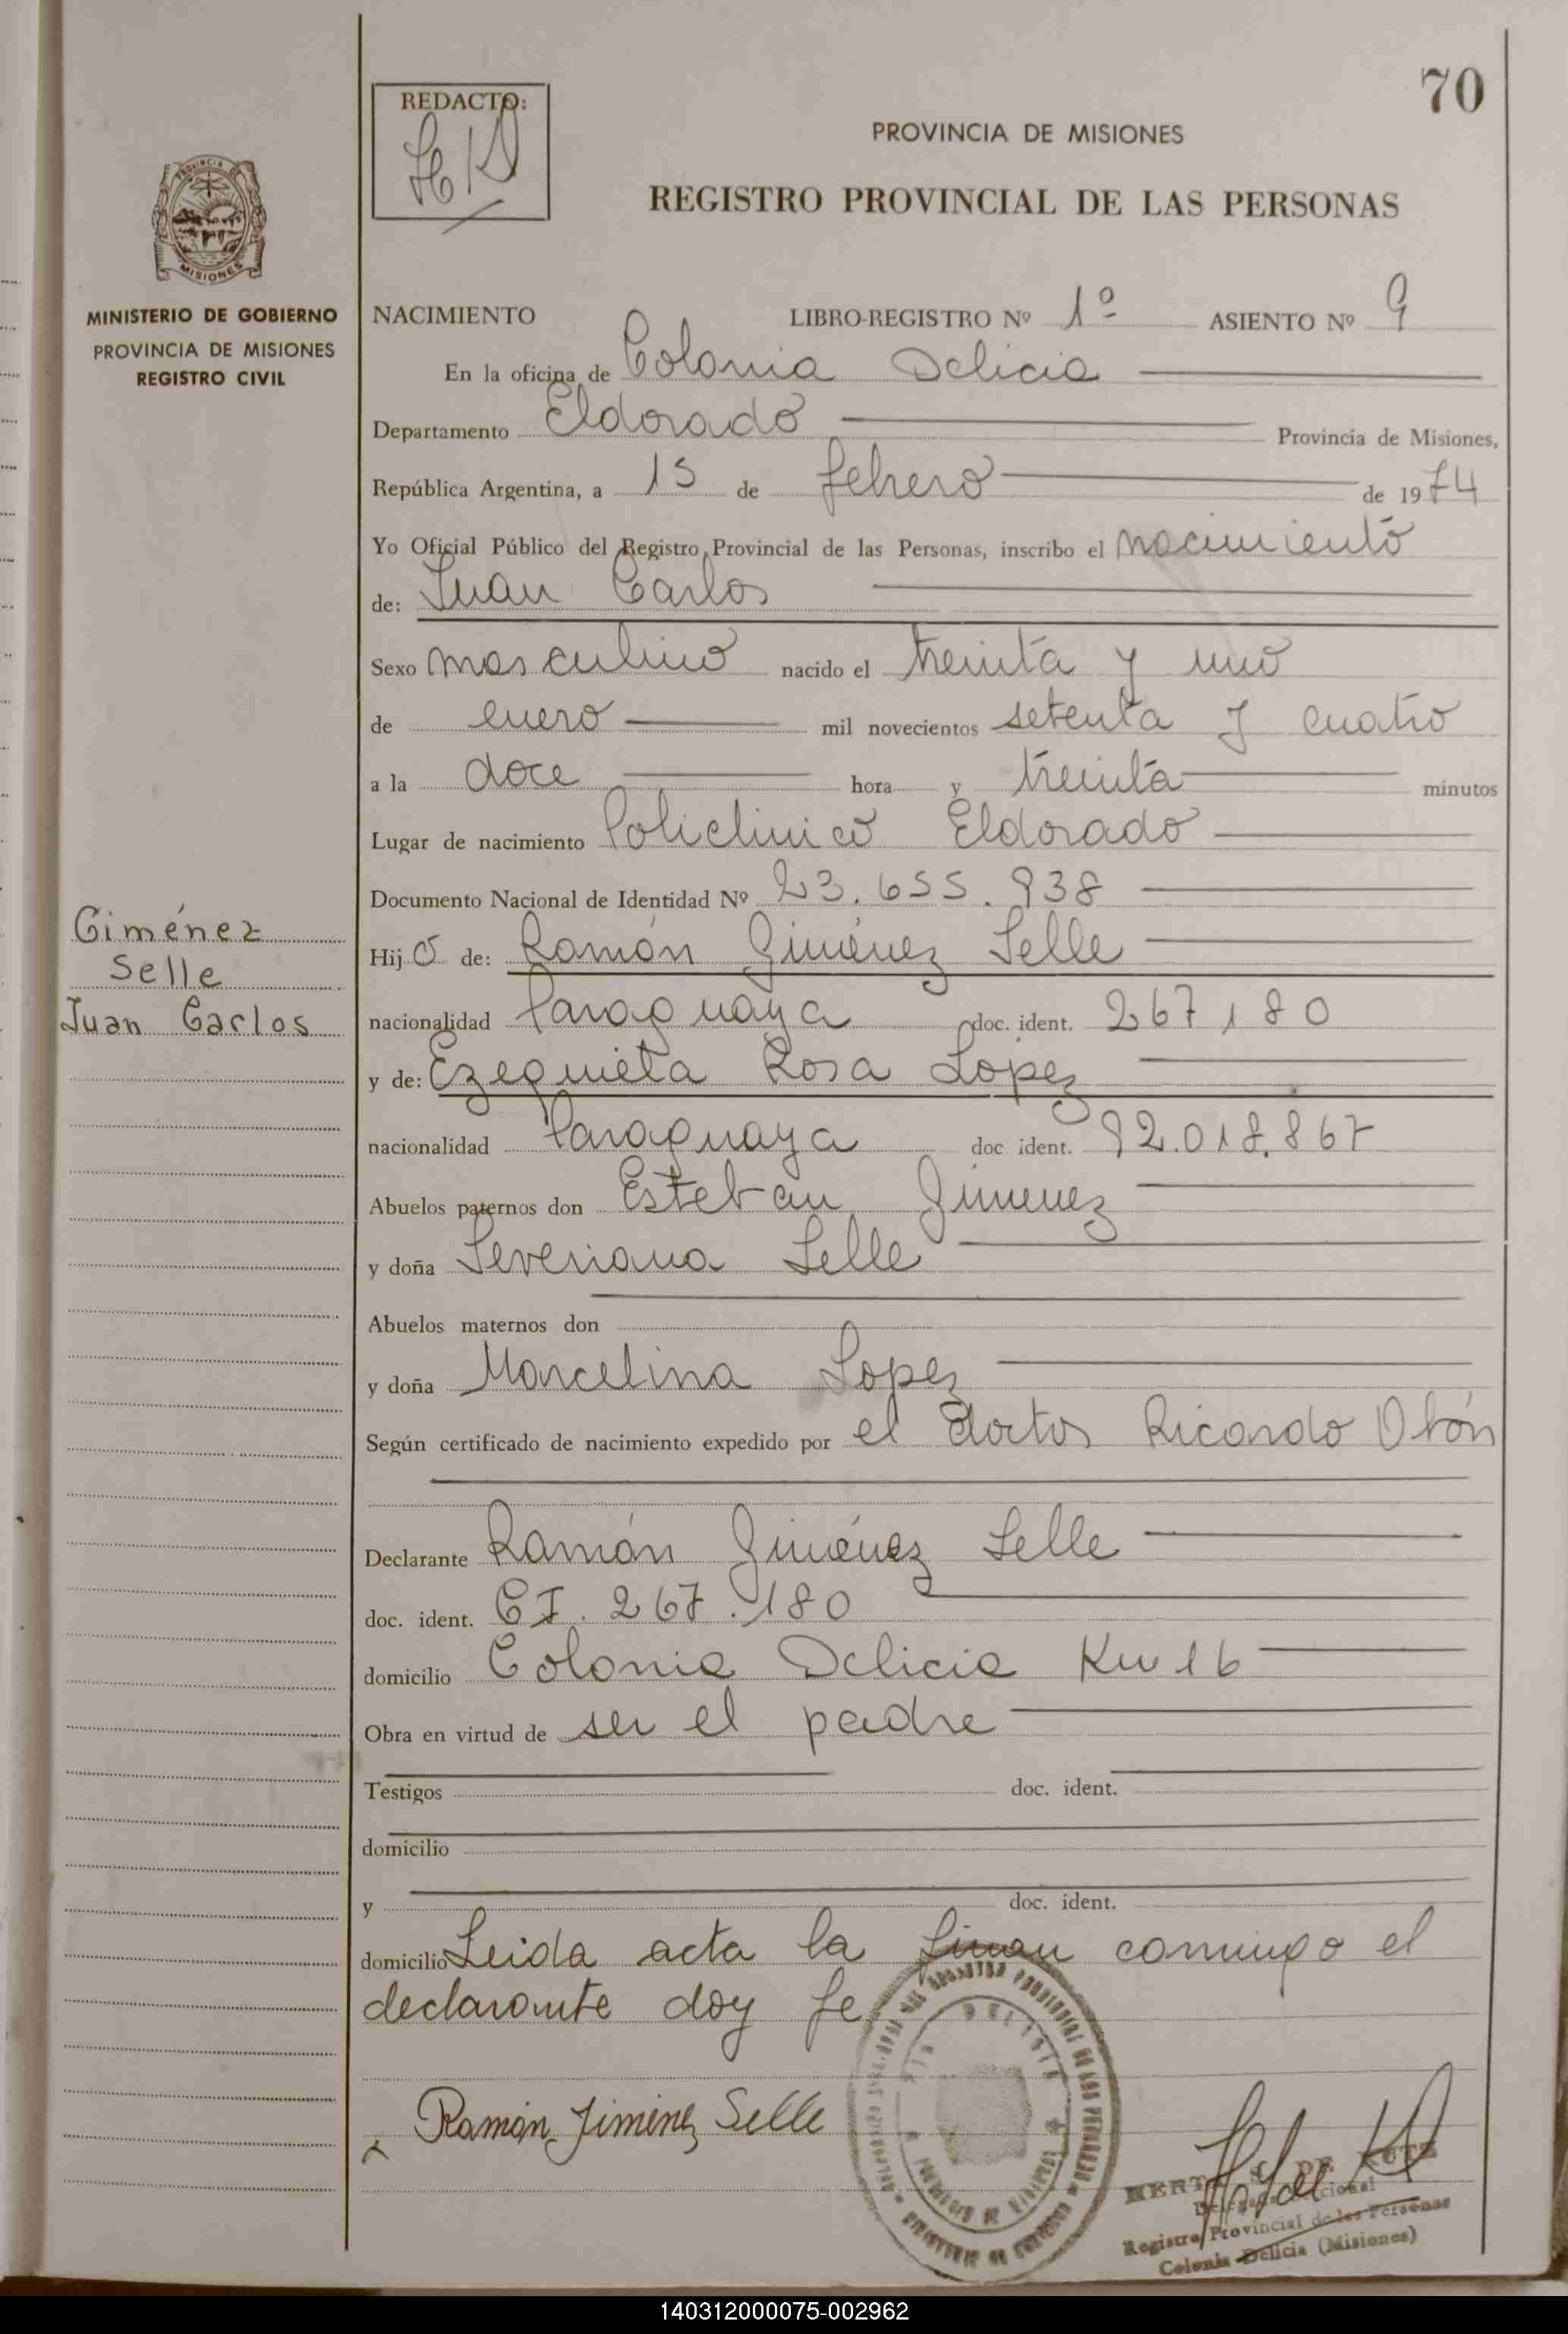 70
REDACTO:
PROVINCIA DE MISIONES
REGISTRO PROVINCIAL DE LAS PERSONAS
PROVINCIA DE
MISIONES
MINISTERIO DE GOBIERNO
PROVINCIA DE MISIONES
REGISTRO CIVIL
NACIMIENTO LIBRO-REGISTRO Nº 1º ASIENTO Nº 9
En la oficina de Colonia Delicia
Departamento Eldorado Provincia de Misiones,
República Argentina, a 15 de febrero de 1974
Yo Oficial Público del Registro Provincial de las Personas, inscribo el nacimiento
de: Juan Carlos
Sexo masculino nacido el treinta y uno
de enero mil novecientos setenta y cuatro
a la doce hora y treinta minutos
Lugar de nacimiento Policlinico Eldorado
Documento Nacional de Identidad Nº 23.655.938
Giménez
Selle
Juan Carlos
Hijo de: Ramón Giménez Selle
nacionalidad Paraguaya doc. ident. 267180
y de: Ezequiela Rosa Lopez
nacionalidad Paraguaya doc ident. 92.018.867
Abuelos paternos don Esteban Jimenez
y doña Severiana Selle
Abuelos maternos don
y doña Marcelina Lopez
Según certificado de nacimiento expedido por el doctor Ricardo Obón
Declarante Ramón Giménez Selle
doc. ident. CI. 267.180
domicilio Colonia Delicia Km 16
Obra en virtud de ser el padre
Testigos doc. ident.
domicilio
y doc. ident.
domicilio Leida acta la firman conmigo el
declarante doy fe
Ramón Jiménez Selle
DE
Registro Provincial de las Personas
Colonia Delicia (Misiones)
140312000075-002962